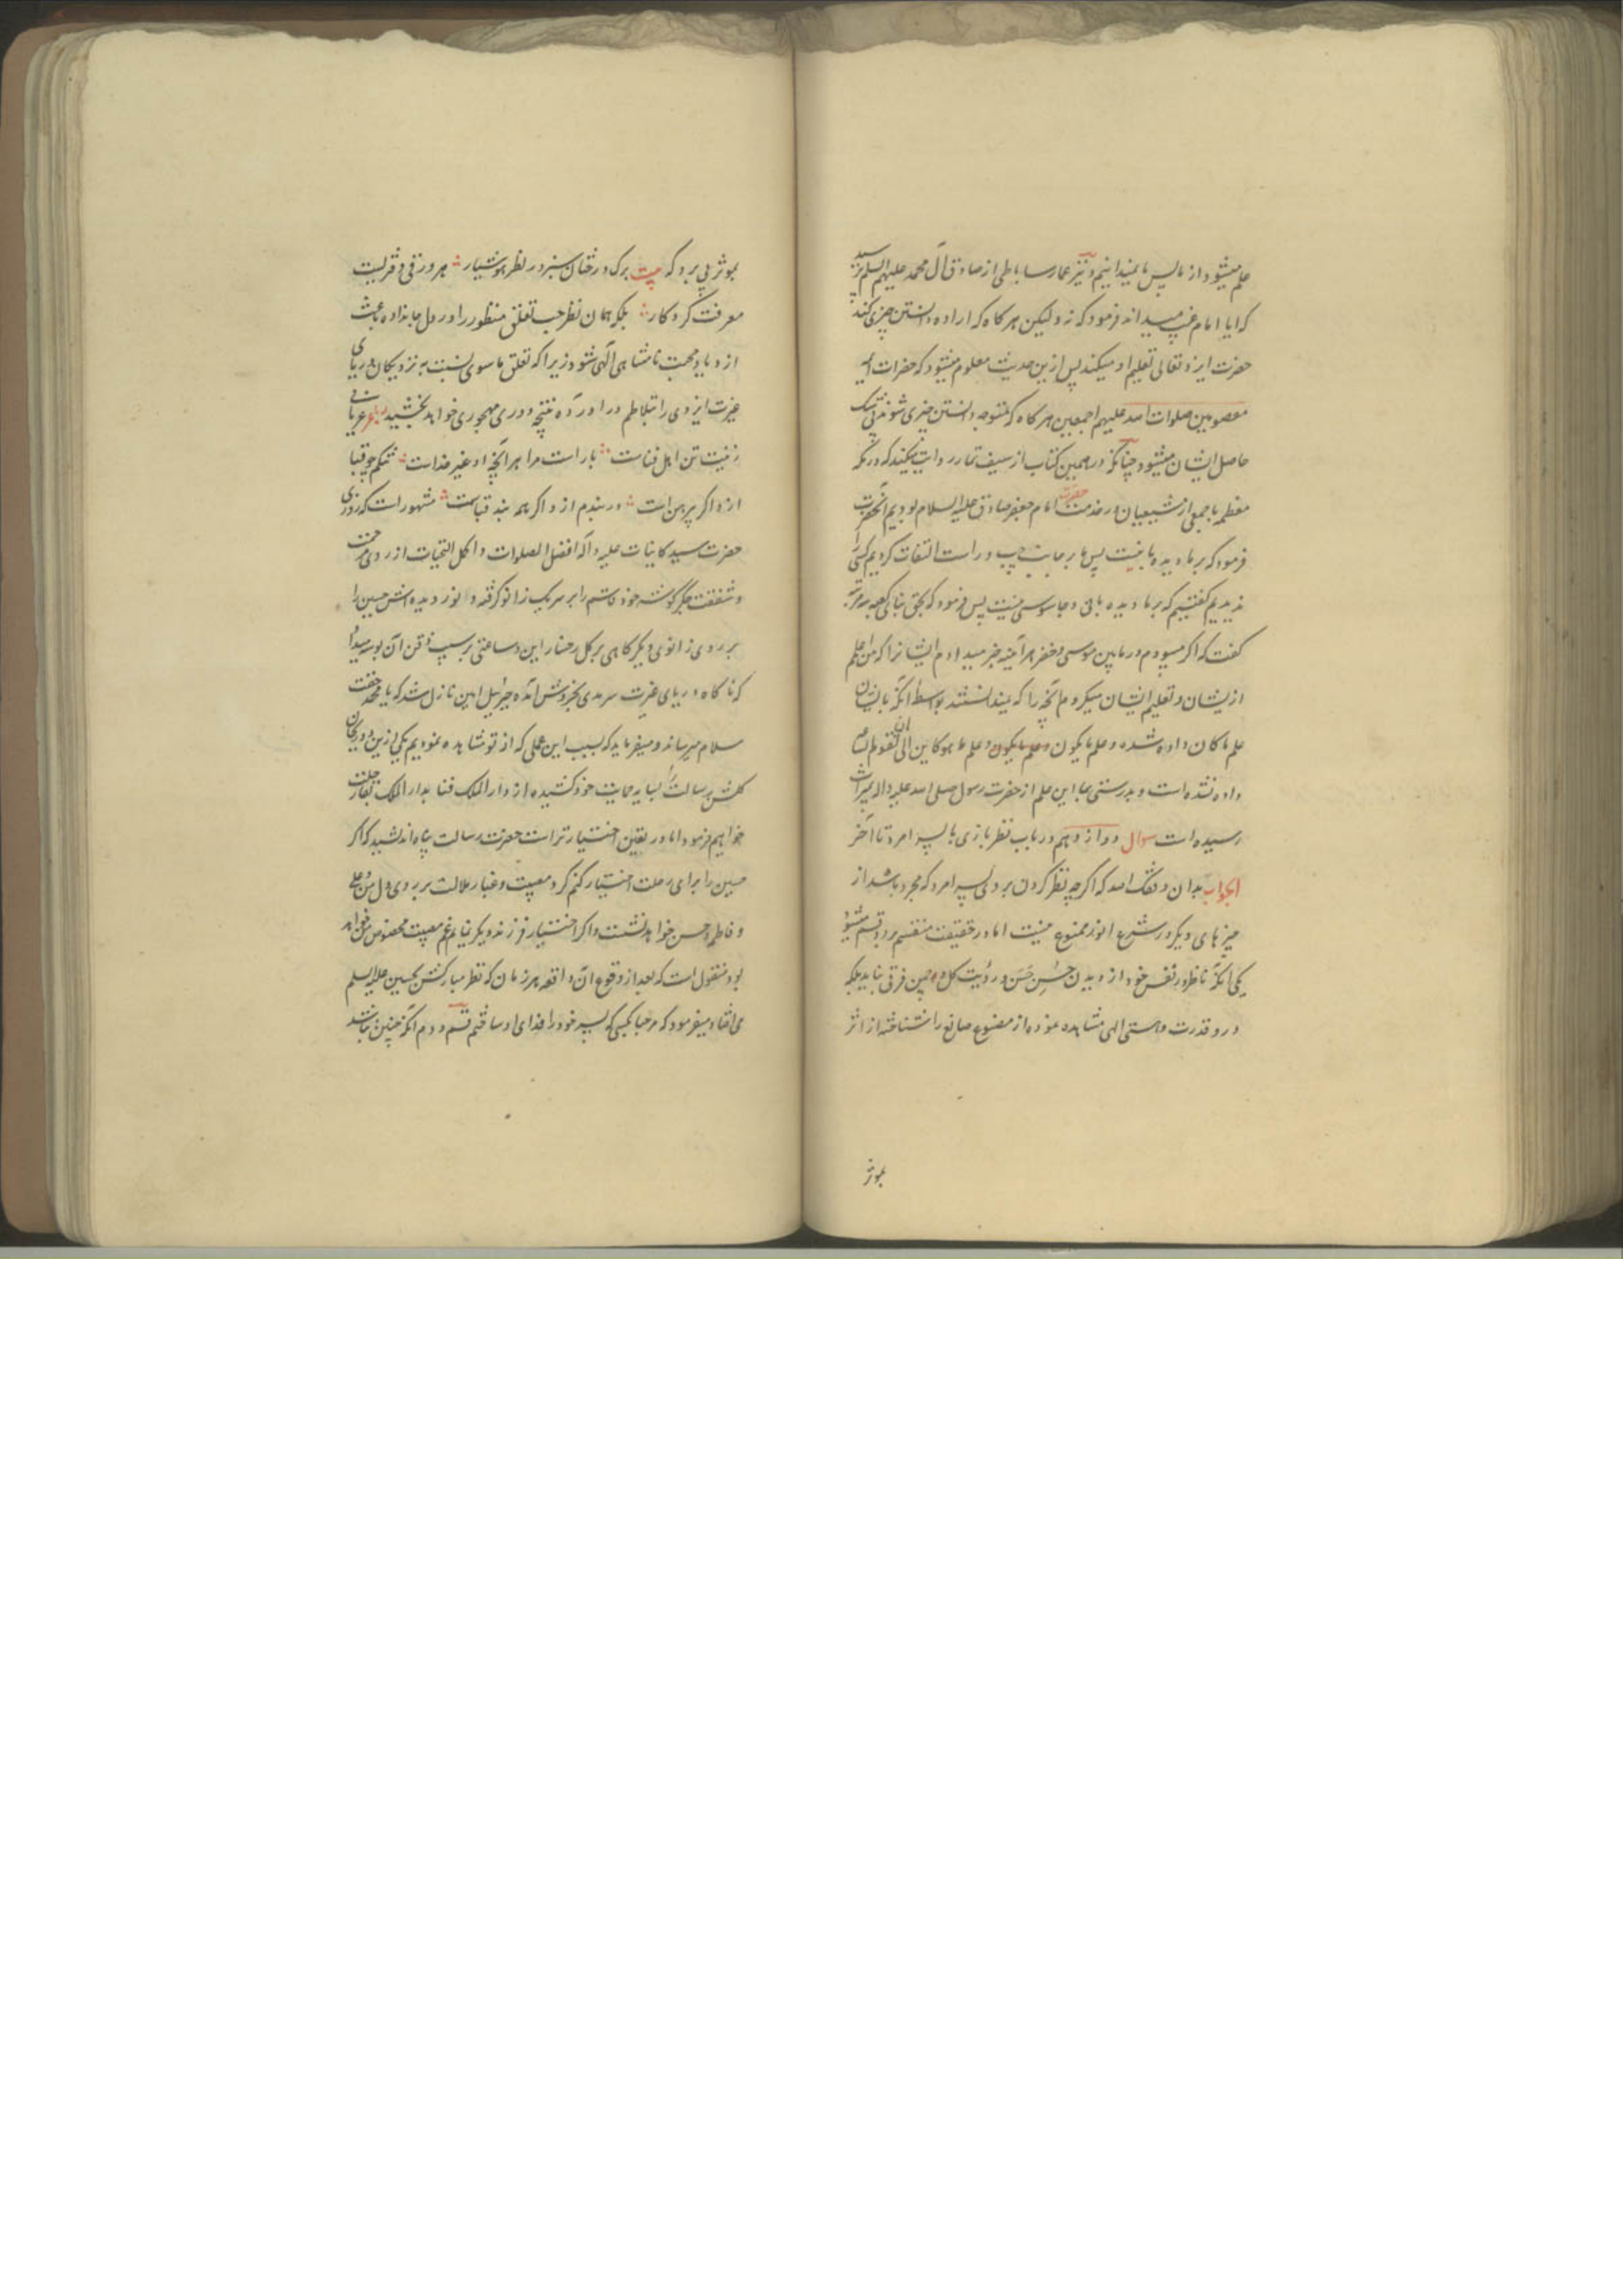 علم میشود از ما پس ما نمیدانیم و نیز عمار ساباطی از صادق آل محمد علیهم السلام پرسید
که ایا امام غیب میداند فرمود که نه ولیکن هر کاه که اراده دانستن چیزی کند
حضرت ایزد تعالی تعلیم او میکند پس ازین حدیث معلوم میشود که حضرات ائمه
معصومین صلوات الله علیهم اجمعین هر کاه که متوجه دانستن چیزی شوند
حاصل ایشان میشود چنانکه در همین کتاب از سیف تمار روایت میکند که در مکه
معظمه با جمعی از شیعیان در خدمت حضرت امام جعفر صادق علیه السلام بودیم آنحضرت
فرمود که بر ما دیده بانیست پس ما بر جانب چپ و راست التفات کردیم کسی را
ندیدیم گفتیم که بر ما دیده بانی و جاسوسی نیست پس فرمود که بحق بنای کعبه سه مرتبه
کفت که اکر میبودم در مابین موسی و خضر هر آینه خبر میدادم ایشانرا که من اعلم
از یشان و تعلیم ایشان میکردم آنچه را که نمیدانستند بواسطه آنکه بایشان
علم ما کان داده شده و علم ما یکون و علم ما یکون و علم ما هو کاین الی ان تقوم الساعه
داده نشده است و بدرستی بما این علم از حضرت رسول صلی الله علیه واله بمیراث
رسیده است سوال دوازدهم در باب نظر بازی با پسر امرد تا آخر
الجواب بدان وفقک الله که اکرچه نظر کردن بر روی پسر امرد که مجرد باشد از
چیزهای دیکر در شرع انور ممنوع نیست اما در حقیقت منقسم بر دو قسم میشود
یکی انکه ناظر در نفس خود از دیدن حسن حسن و رؤیت کل و چمن فرقی نیابد بلکه
درو قدرت و هستی الهی مشاهده نموده از مصنوع صانع را شناخته از اثر
بموثر
بموثر پی برد که بیت برک درختان سبز در نظر هوشیار هر ورقی دفتریست
معرفت کردکار بلکه همان نظر حب تعلق منظور را در دل جا نداده باعث
ازدیاد محبت نامتناهی الهی شود زیرا که تعلق ما سوی نسبت به نزدیکان دریای
غیرت ایزدی را بتلاطم در اورده نتیجه دوری مهجوری خواهد بخشید رباعی عریانی
زینت تن اهل فناست بار است مرا هر آنچه او غیر خداست تنکم چو قبا
ازو اکر پیرهن است در بندم ازو اکر همه بند قباست مشهور است که روزی
حضرت سید کاینات علیه و آله افضل الصلوات و اکمل التحیات از روی مرحمت
و شفقت جکر کوشه خود قاسم را بر سر یک زانو کرفته و نور دیده اش حسین را
بر روی زانوی دیکر کاهی بر کل رخسار این و ساعتی بر سیب ذقن آن بوسه میداد
که نا کاه دریای غیرت سرمدی بخروش آمده جبرئیل امین نازل شد که یا محمد حقت
سلام میرساند و میفرماید که بسبب این عملی که از تو مشاهده نمودیم یکی ازین دو ریحان
کلشن رسالت را بسایه حمایت خود کشیده از دار الملک فنا بدار الملک بقا رحلت
خواهیم فرمود اما در تعین اختیار تراست حضرت رسالت پناه اندیشید که اکر
حسین را برای رحلت اختیار کنم کرد مصیبت و غبار ملالت بر روی دل من و علی
و فاطمه و حسن خواهد نشست و اکر اختیار فرزند دیکر نمایم غم مصیبت مخصوص من خواهد
بود منقول است که بعد از وقوع آن واقعه هر زمان که نظر مبارکش بحسین علیه السلم
می افتاد میفرمود که مرحبا بکسی که پسر خود را فدای او ساختم قسم دوم انکه چنین نباشد